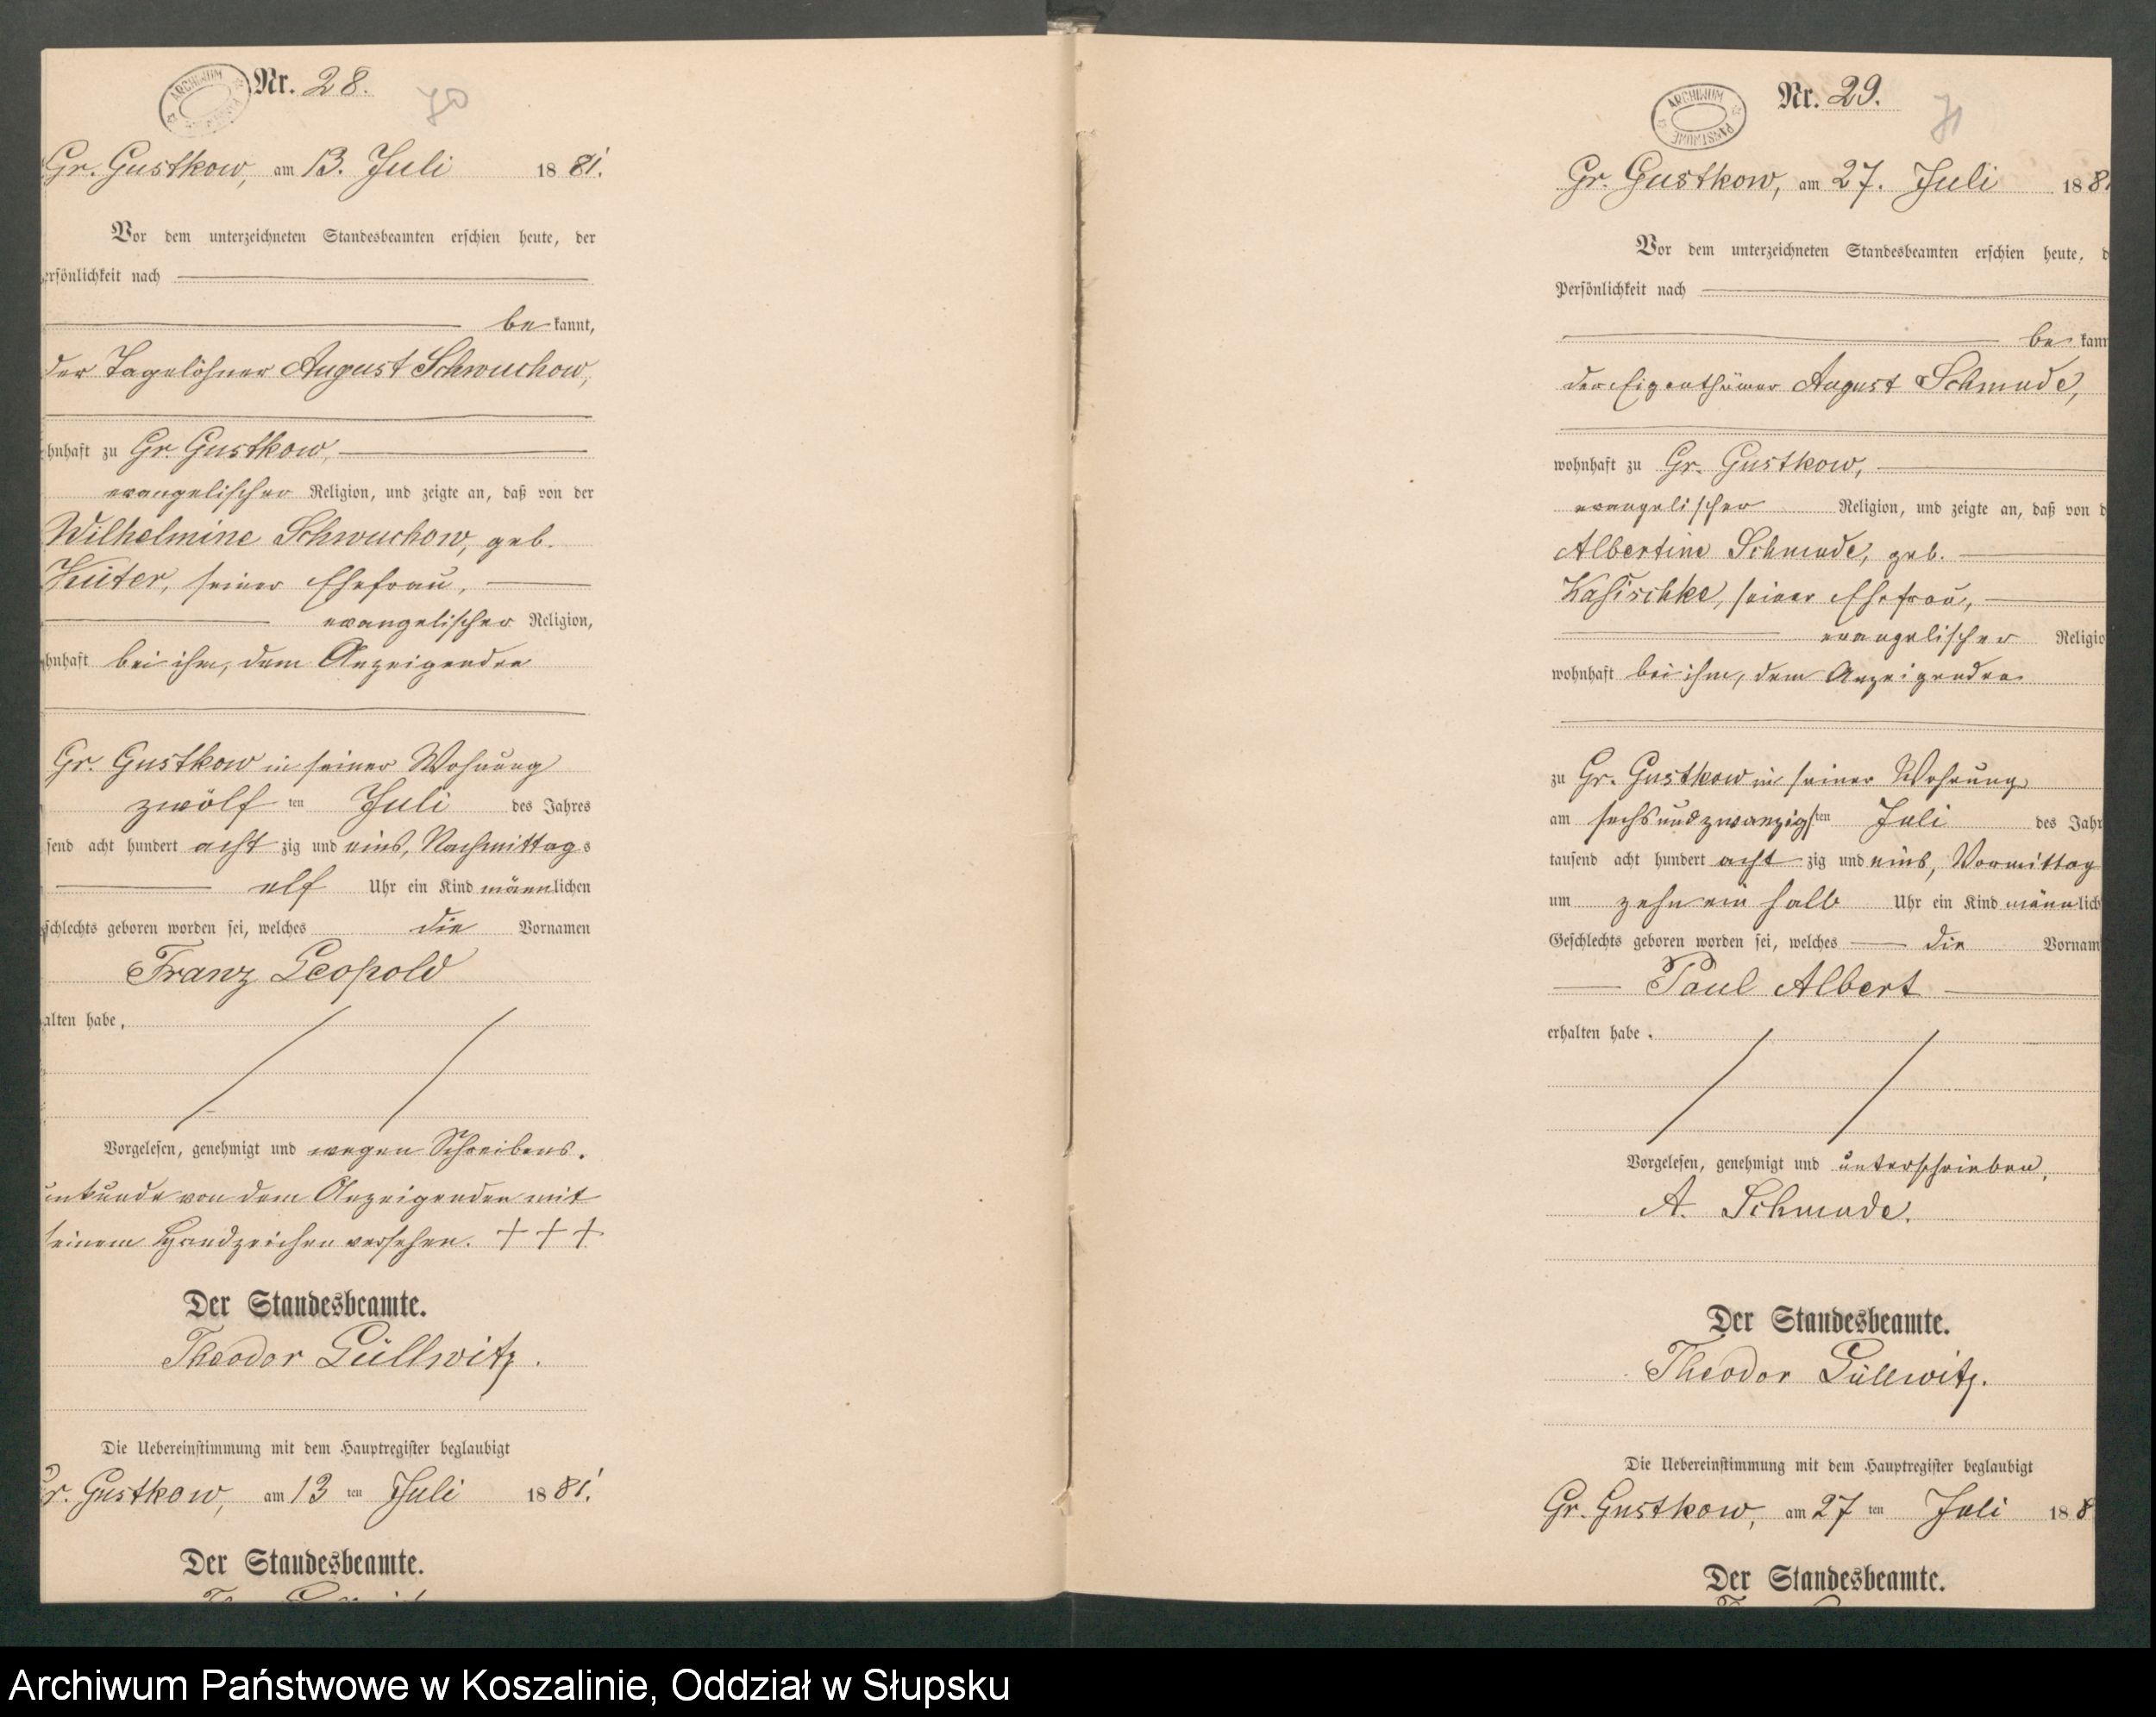 Nr. 28.
70
Gr. Gustkow, am 13. Juli 1881.
Vor dem unterzeichneten Standesbeamten erschien heute, der
ersönlichkeit nach
be kannt,
der Tagelöhner August Schwuchow,
hnhaft zu Gr. Gustkow,
evangelischer Religion, und zeigte an, daß von der
Wilhelmine Schwuchow, geb.
Küter, seiner Ehefrau,
evangelischer Religion,
hnhaft bei ihm, dem Anzeigenden
Gr. Gustkow in seiner Wohnung
zwölf ten Juli des Jahres
send acht hundert acht zig und eins, Nachmittags
elf Uhr ein Kind männlichen
schlechts geboren worden sei, welches die Vornamen
Franz Leopold
alten habe,
Vorgelesen, genehmigt und wegen Schreibens-
unkunde von dem Anzeigenden mit
seinem Handzeichen versehen. + + +
Der Standesbeamte.
Theodor Güllwitz.
Die Uebereinstimmung mit dem Hauptregister beglaubigt
Gr. Gustkow, am 13 ten Juli 1881.
Der Standesbeamte.
ARCHIWUM PAŃSTWOWE
Nr. 29.
71
Gr. Gustkow, am 27. Juli 188
Vor dem unterzeichneten Standesbeamten erschien heute, d
Persönlichkeit nach
be kann
der Eigenthümer August Schmude,
wohnhaft zu Gr. Gustkow,
evangelischer Religion, und zeigte an, daß von d
Albertine Schmude, geb.
Kasischke, seiner Ehefrau,
evangelischer Religio
wohnhaft bei ihm, dem Anzeigenden
zu Gr. Gustkow in seiner Wohnung
am sechsundzwanzigsten Juli des Jahr
tausend acht hundert acht zig und eins, Vormittag
um zehn ein halb Uhr ein Kind männlich
Geschlechts geboren worden sei, welches die Vornam
Paul Albert
erhalten habe.
Vorgelesen, genehmigt und unterschrieben,
A. Schmude.
Der Standesbeamte.
Theodor Güllwitz.
Die Uebereinstimmung mit dem Hauptregister beglaubigt
Gr. Gustkow, am 27 ten Juli 188
Der Standesbeamte.
Archiwum Państwowe w Koszalinie, Oddział w Słupsku